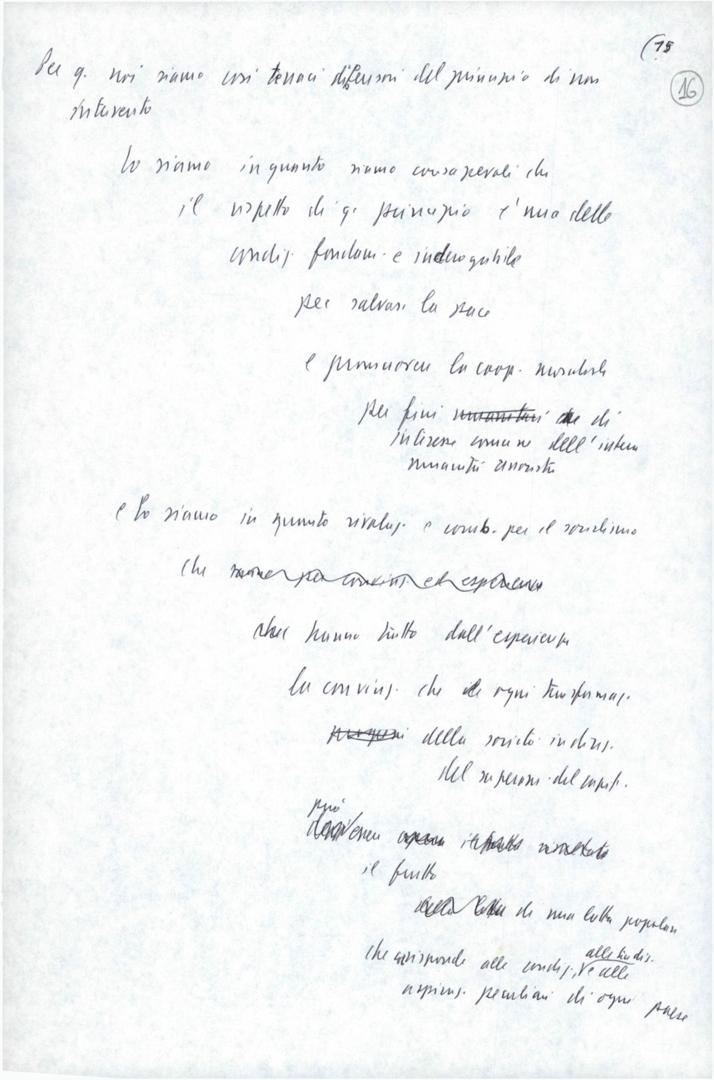 (15
16
Per q. noi siamo così tenaci difensori del principio di non
intervento
Lo siamo in quanto siamo consapevoli che
il rispetto di q. principio è una delle
condiz. fondam. e inderogabile
per salvare la pace
e promuovere la coop. mondiale
per fini umanitari di
interesse comune dell'intera
umanità
e lo siamo in quanto rivoluz. e comb. per il socialismo
che per convinz. ed esperienza
che hanno tratto dall'esperienza
la convinz. che ogni trasformaz.
della società in direz.
del superam. del capit.
può
essere risultato
il frutto
della lotta di una lotta popolare
alle tradiz.
che corrisponde alle condiz., e alle
aspiraz. peculiari di ogni paese